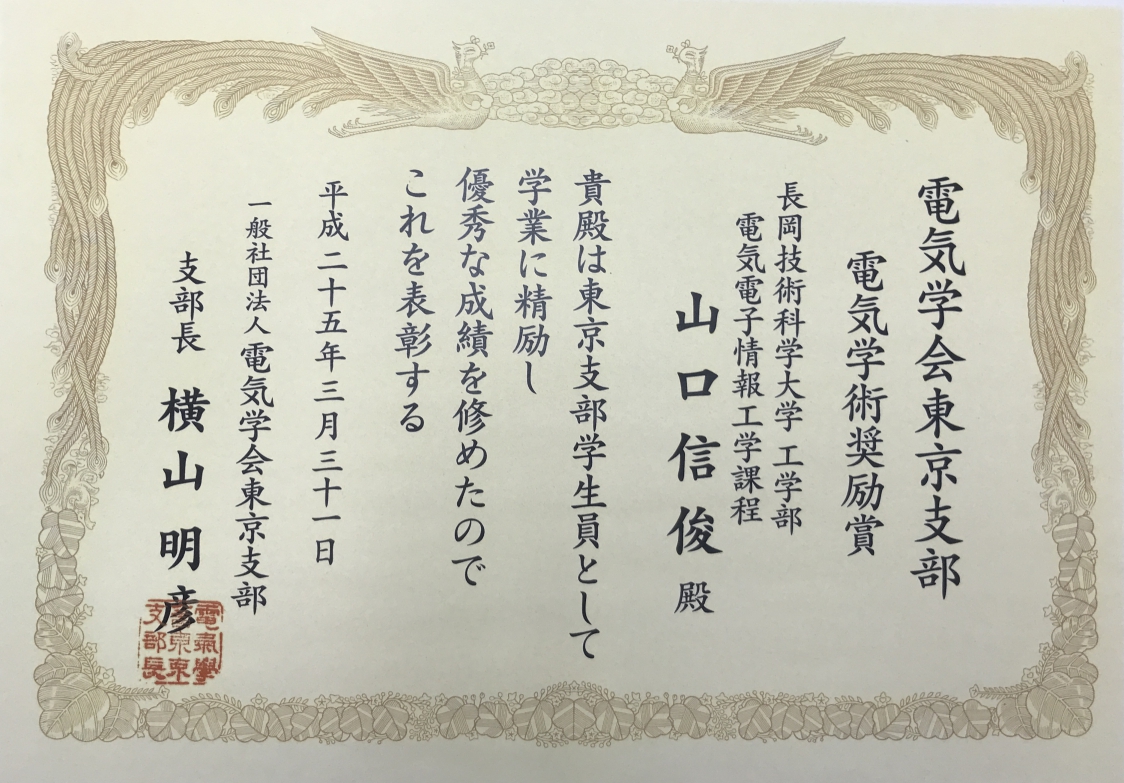 電気学会東京支部
電気学術奨励賞
長岡技術科学大学 工学部
電気電子情報工学課程
山口信俊 殿
貴殿は東京支部学生員として
学業に精励し
優秀な成績を修めたので
これを表彰する
平成二十五年三月三十一日
一般社団法人電気学会東京支部
支部長 横山明彦